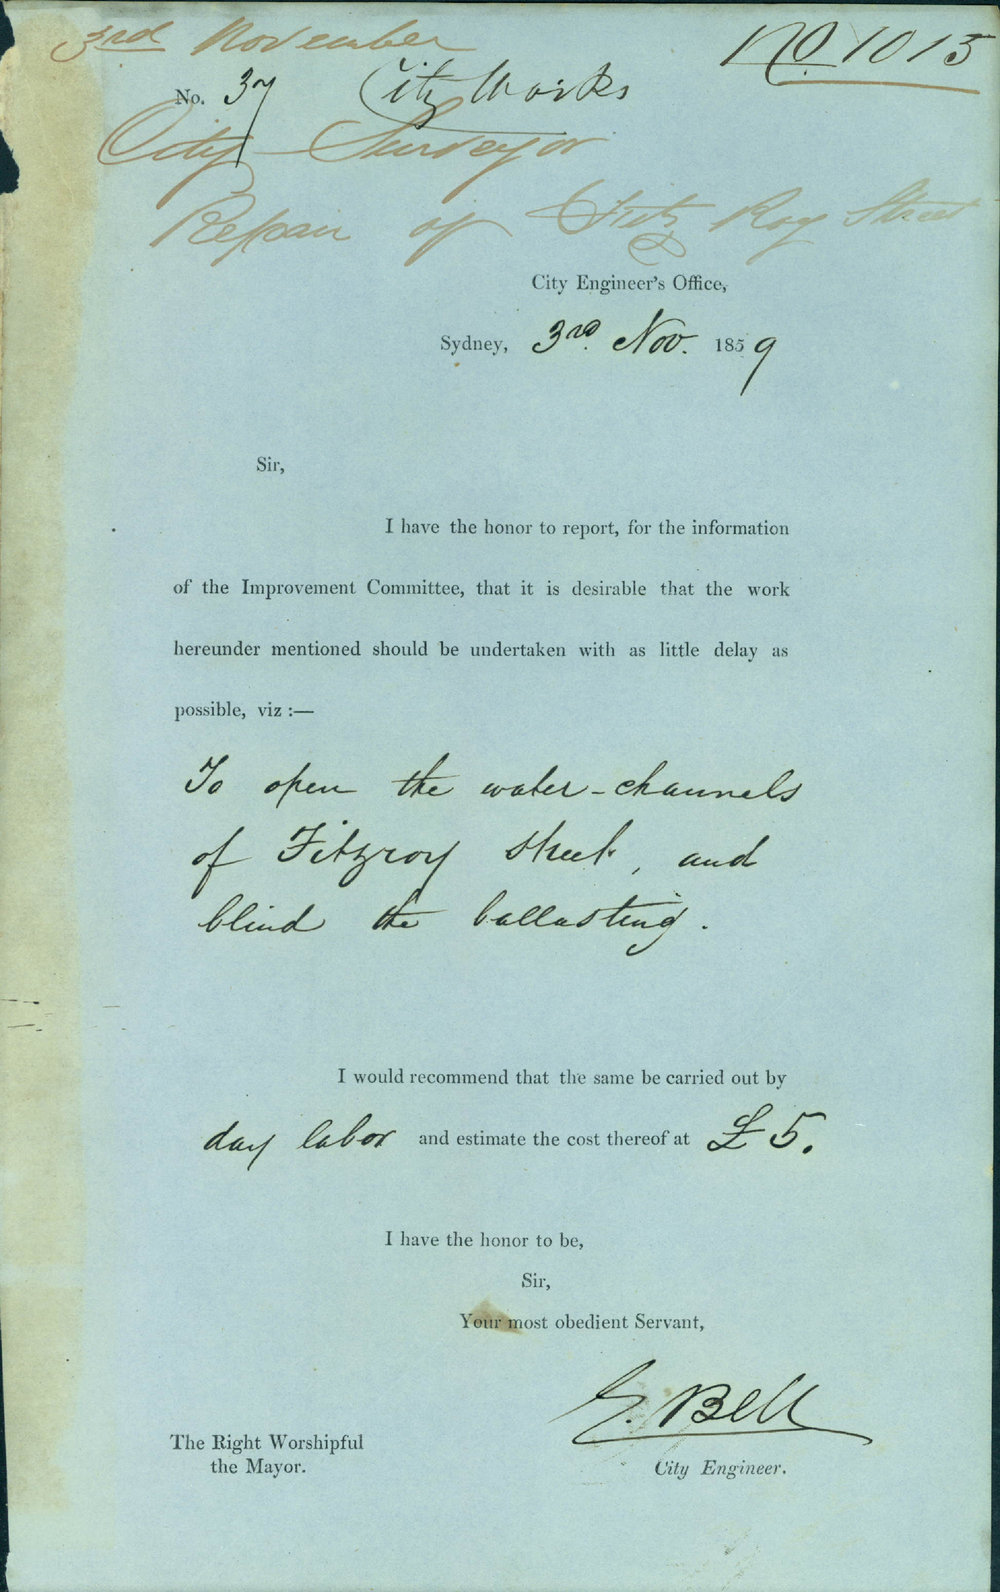 3rd November
No. 1015
No. 37 City Works
City Surveyor
Repair of Fitz Roy Street
City Engineer's Office,
Sydney, 3rd Nov. 1859
Sir,
I have the honor to report, for the information
of the Improvement Committee, that it is desirable that the work
hereunder mentioned should be undertaken with as little delay as
possible, viz :—
To open the water-channels
of Fitzroy Street, and
blind the ballasting.
I would recommend that the same be carried out by
day labor and estimate the cost thereof at £5.
I have the honor to be,
Sir,
Your most obedient Servant,
E. Bell
The Right Worshipful
the Mayor.
City Engineer.